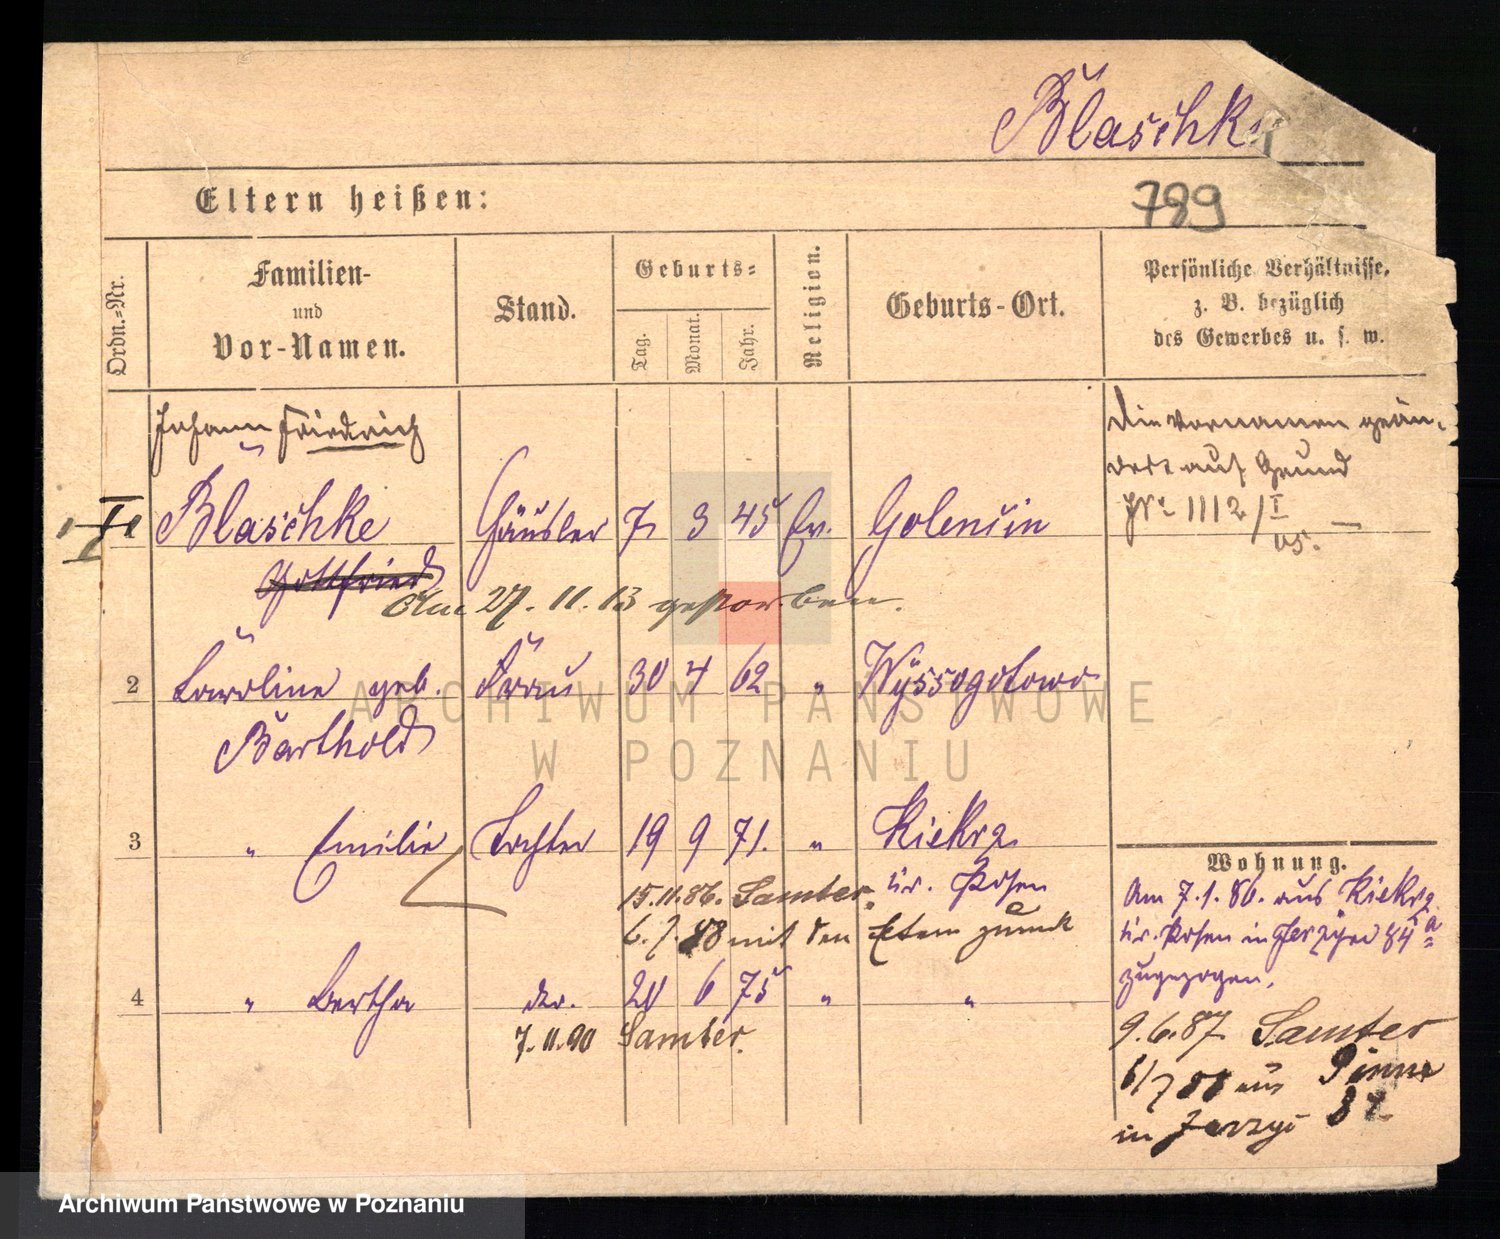 Blaschke
Eltern heißen:
789
Ordn.=Nr.
Familien-
und
Vor-Namen.
Stand.
Geburts=
Tag.
Monat.
Jahr.
Religion.
Geburts-Ort.
Persönliche Verhältnisse,
z. B. bezüglich
des Gewerbes u. s. w.
Johann Friedrich
Die Vornamen geän-
dert auf Grund
Nr 1112/I
05.
1 Blaschke Häusler 7 3 45 Ev. Golenčin
Gottfried
Am 27.11.13 gestorben.
2 Karoline geb. Frau 30 4 62 " Wyssogotowo
Barthold
3 " Emilie Tochter 19 9 71. " Kiekrz
Kr. Posen
15.11.86. Samter.
6.7.88 mit den Eltern zurück
4 " Bertha do. 20 6 75 " "
7.11.90 Samter.
Wohnung.
Am 7.1.86. aus Kiekrz
Kr. Posen in Jerzyce 84a
zugezogen.
9.6.87 Samter
6/7 88 aus Pinne
in Jerzyce
ARCHIWUM PAŃSTWOWE
W POZNANIU
Archiwum Państwowe w Poznaniu